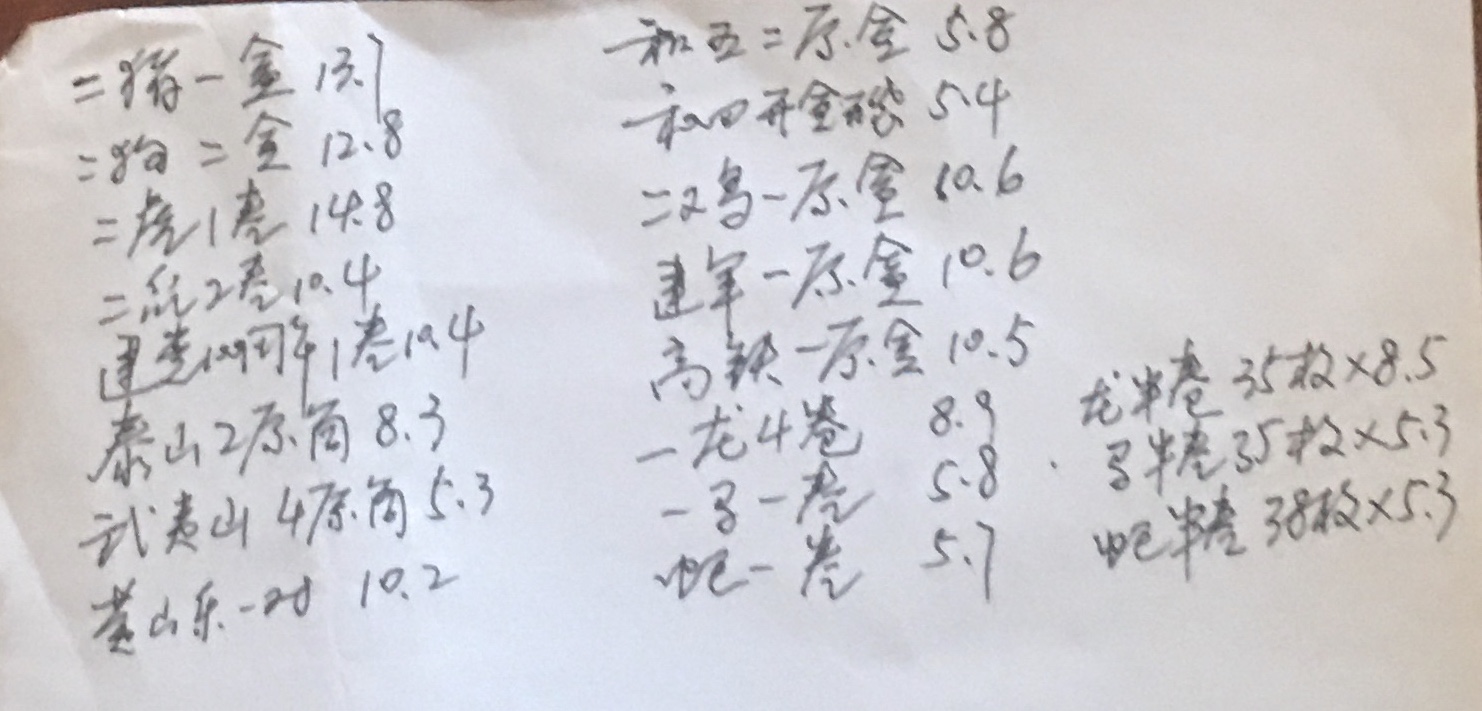 二猪一盒 13.7
二狗二盒 12.8
二虎1卷 14.8
二鼠2卷10.4
建党100周年1卷10.4
泰山2原角 8.3
武夷山4原角5.3
黄山 一对 10.2
一和五二原盒 5.8
一和四开盒 5.4
二 鸟一原盒 10.6
建军一原盒 10.6
高铁一原盒 10.5
一龙4卷 8.9
一马一卷 5.8
蛇一卷 5.7
龙半卷 35枚×8.5
马半卷35枚×5.3
蛇半卷38枚×5.3